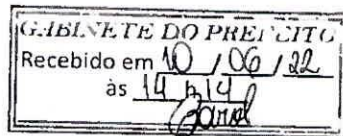 GABINETE DO PREFEITO
Recebido em 10 / 06 / 22
às 14 h 14